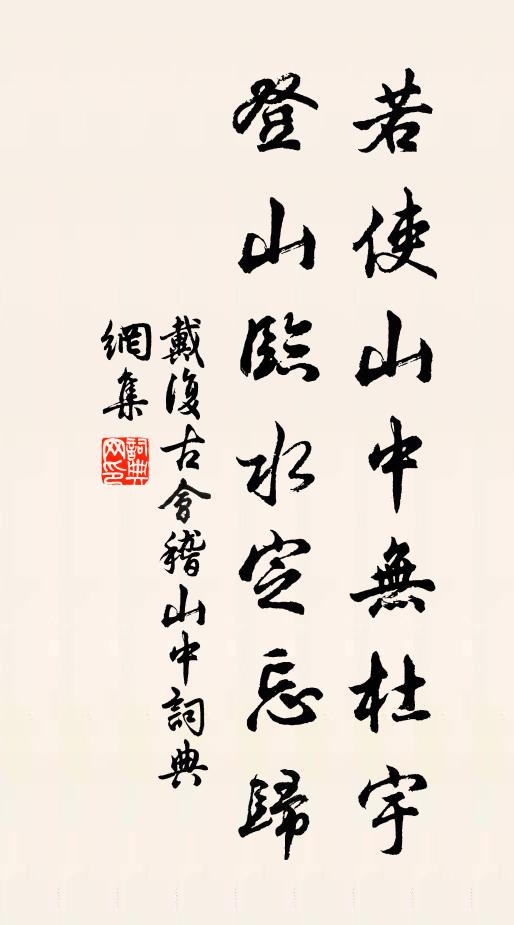 若使山中無杜宇
登山臨水定忘歸
戴復古會稽山中詞典
網集
詞典
网印